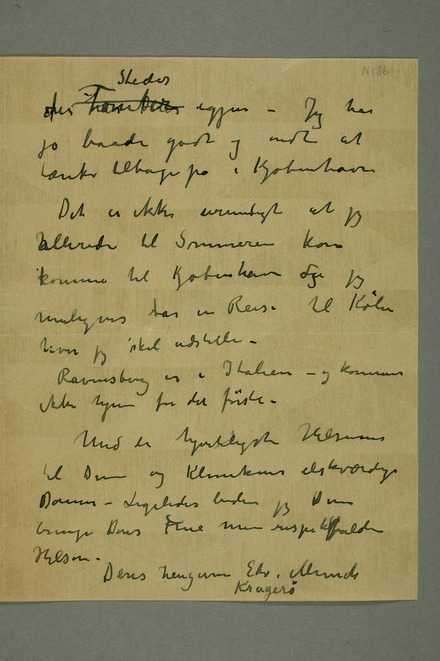 N 186
Stedet
igjen – Jeg har
jo baade godt og ondt at
tænke tilbage på i Kjøbenhavn
Det er ikke umuligt at jeg
allerede til Sommeren kan
komme til Kjøbenhavn da jeg
muligens tar en Reise til Køln
hvor jeg skal udstille –
Ravensberg er i Italien – og kommer
ikke hjem for det første –
Med en hjerteligste Hilsener
til Dem og Klinikens elskværdige
Damer – Ligeledes beder jeg Dem
bringe Deres Frue min respektfulde
Hilsen –
Deres hengivne Edv. Munch
Kragerø